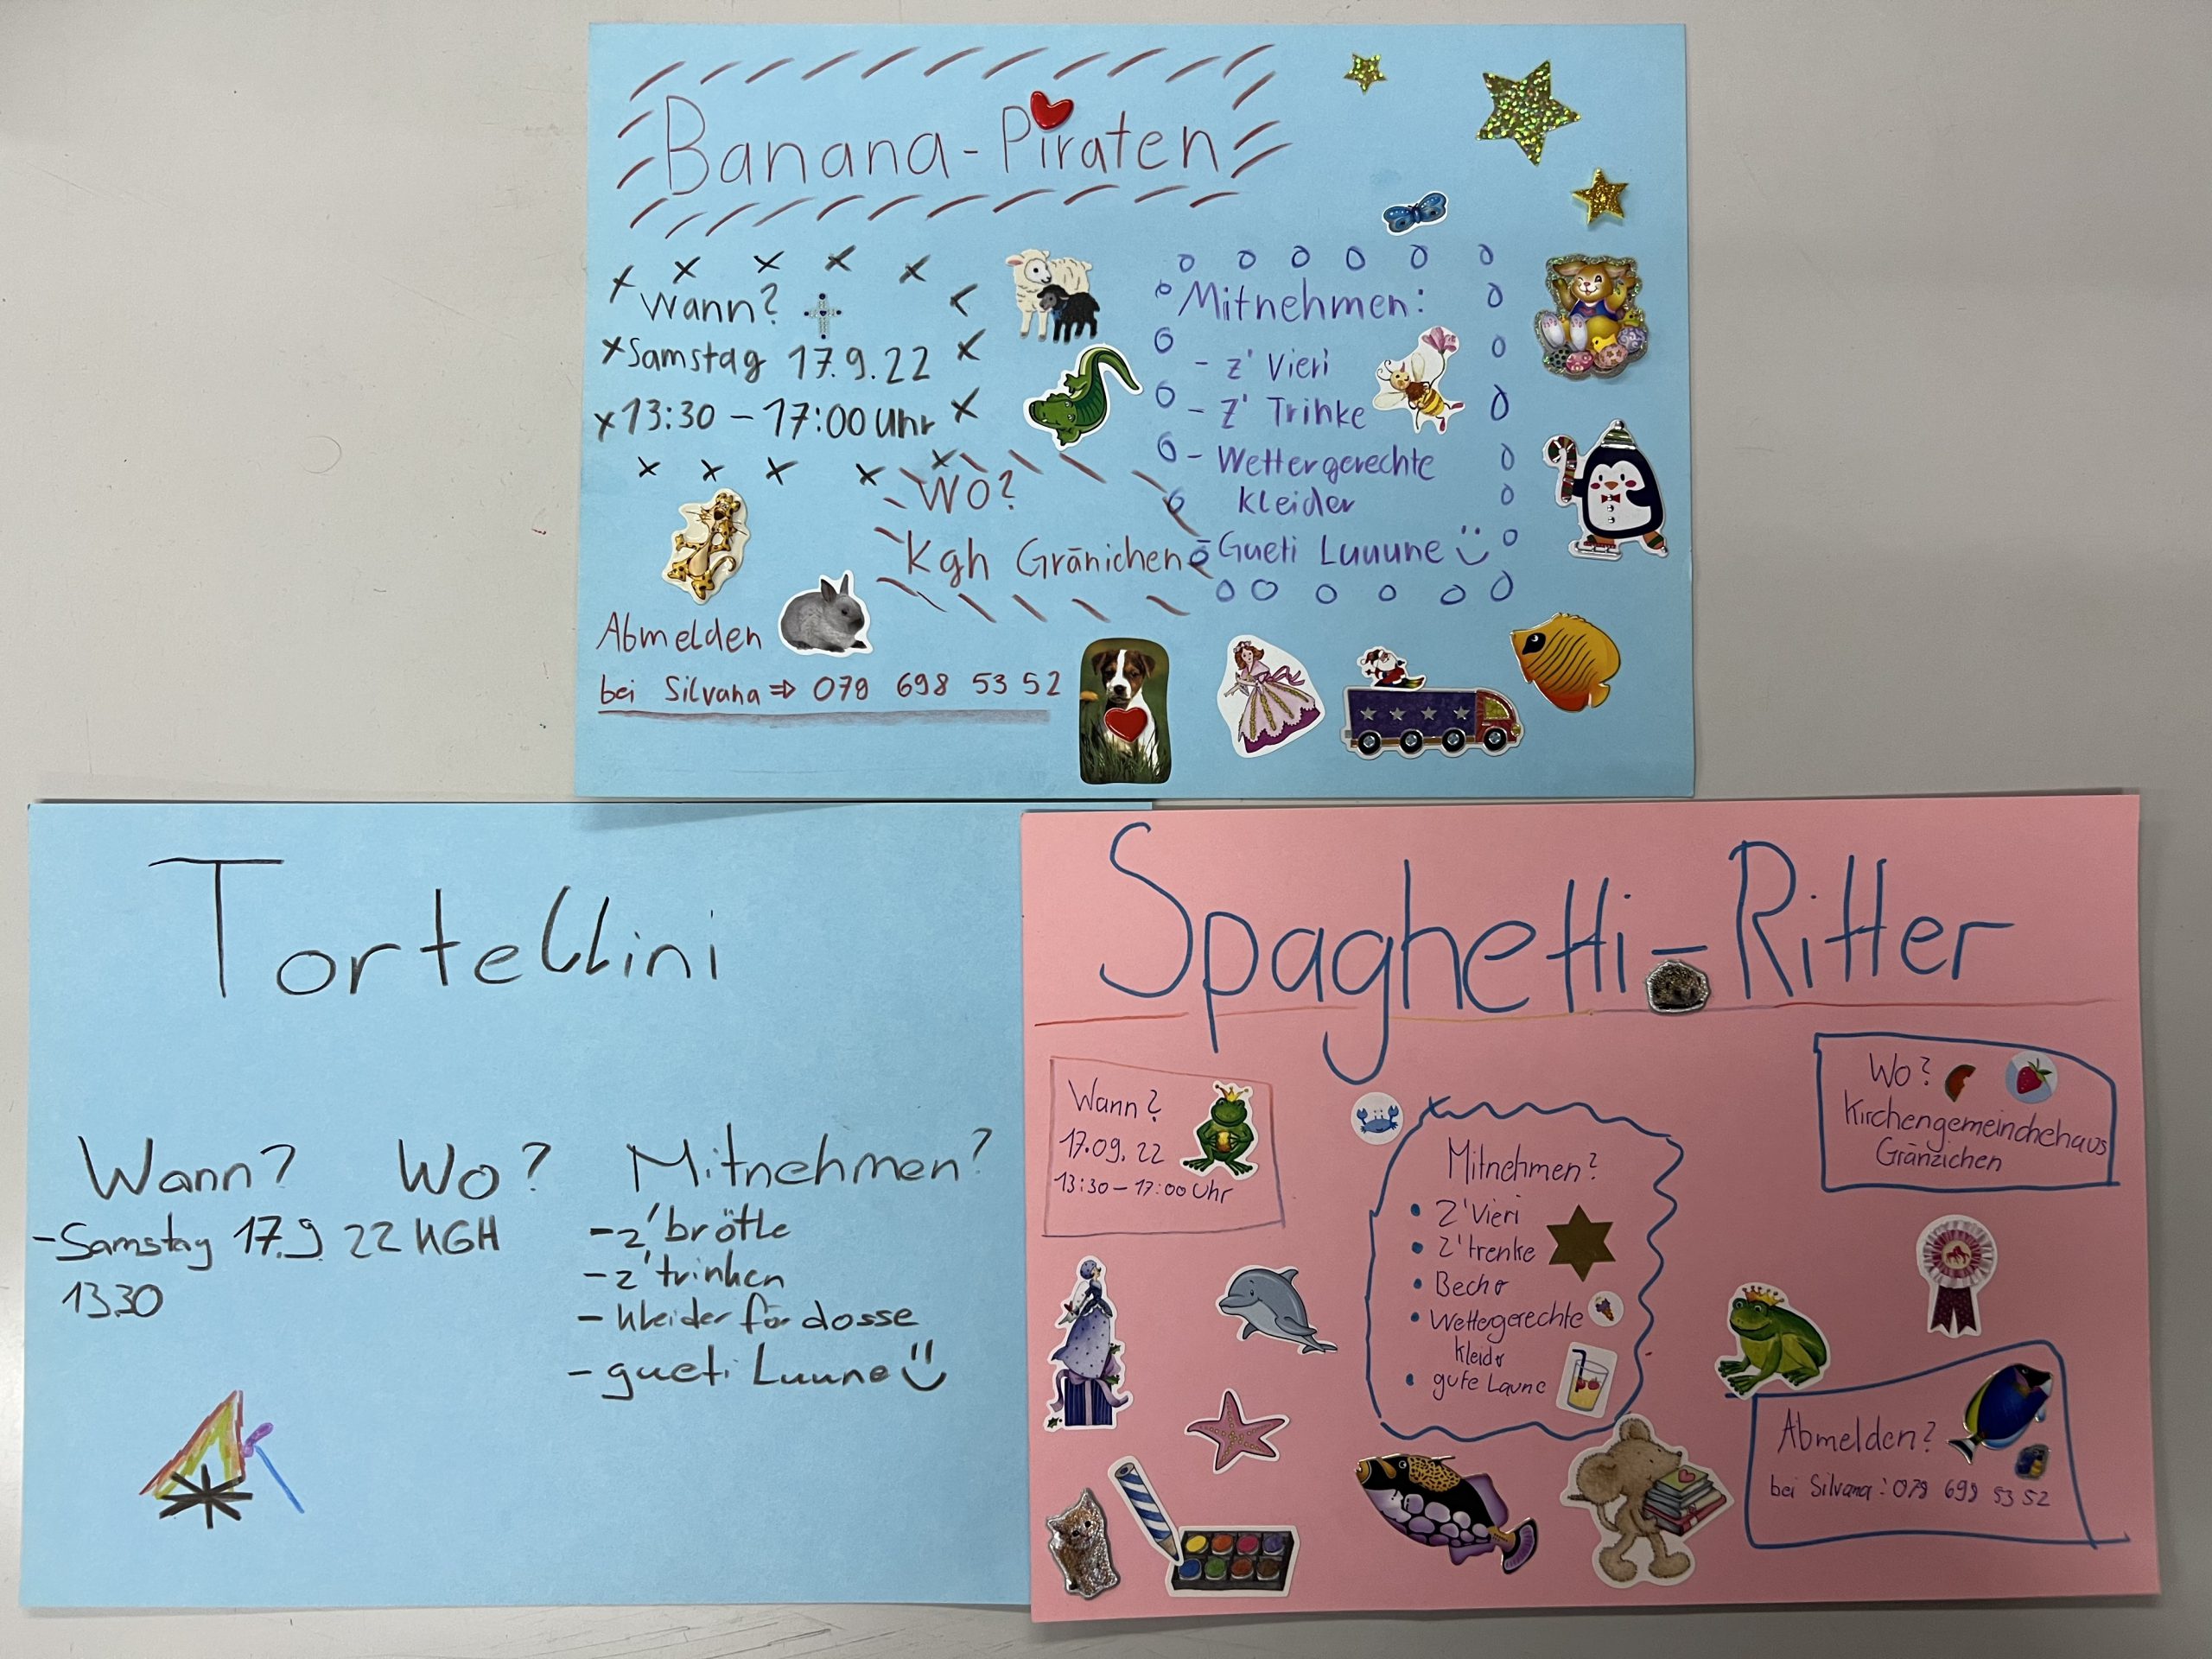 Banana-Piraten
Wann?
Samstag 17.9.22
13:30 - 17:00 Uhr
Wo?
Kgh Gränichen
Mitnehmen:
- z' Vieri
- z' Trinke
- Wettergerechte
Kleider
Gueti Luuune
Abmelden
bei Silvana ⇒ 079 698 53 52
Tortellini
Wann?
-Samstag 17.9 22
13.30
Wo?
KGH
Mitnehmen?
-z'brötle
-z'trinken
-Kleider för dosse
-gueti Luune
Spaghetti-Ritter
Wann?
17.09.22
13:30-17:00 Uhr
Mitnehmen?
• Z'Vieri
• Z'trenke
• Becher
• Wettergerechte
Kleider
• gute Laune
Wo?
Kirchengemeindehaus
Abmelden?
bei Silvana: 079 698 53 52